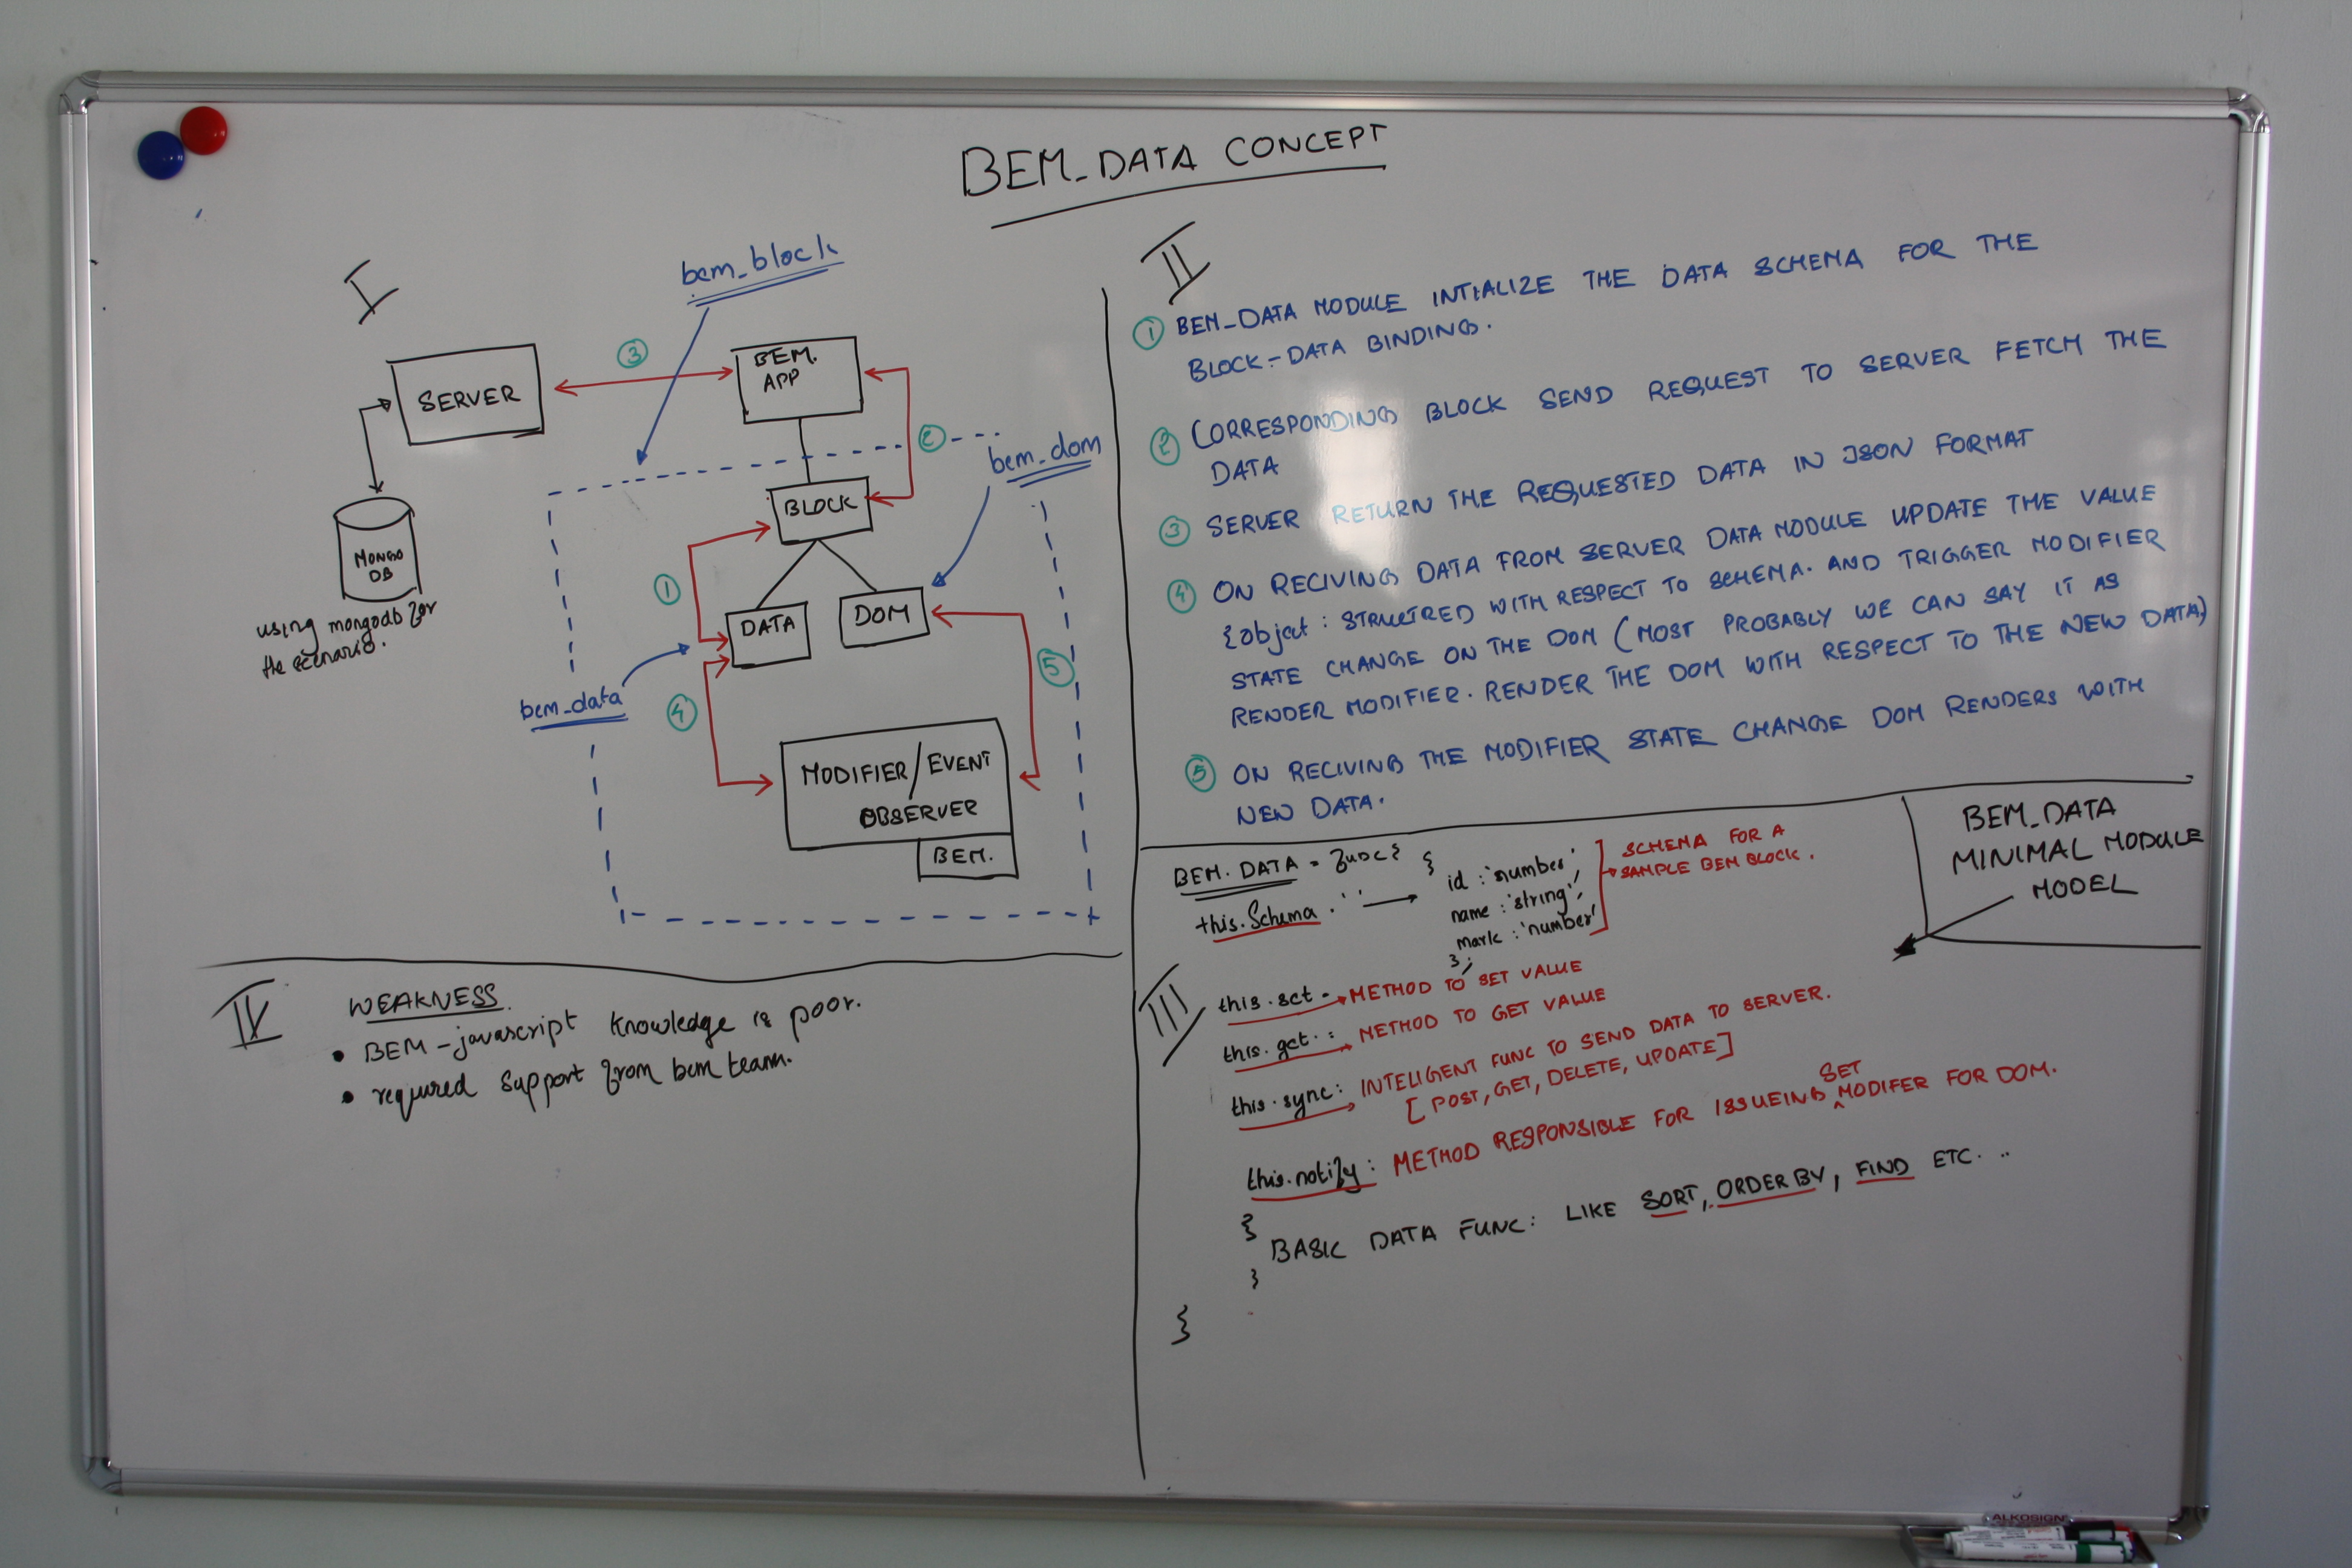 BEM_DATA CONCEPT
I
bem_block
SERVER
3
BEM.
APP
2
bem_dom
MONGO
DB
using mongodb for
the scenario.
BLOCK
1
DATA
DOM
5
bem_data
4
MODIFIER/EVENT
OBSERVER
BEM.
II
1 BEM_DATA MODULE INTIALIZE THE DATA SCHEMA FOR THE
BLOCK-DATA BINDING.
2 CORRESPONDING BLOCK SEND REQUEST TO SERVER FETCH THE
DATA
3 SERVER RETURN THE REQUESTED DATA IN JSON FORMAT
4 ON RECIVING DATA FROM SERVER DATA MODULE UPDATE THE VALUE
{object : STRUCTRED WITH RESPECT TO SCHEMA. AND TRIGGER MODIFIER
STATE CHANGE ON THE DOM (MOST PROBABLY WE CAN SAY IT AS
RENDER MODIFIER. RENDER THE DOM WITH RESPECT TO THE NEW DATA)
5 ON RECIVING THE MODIFIER STATE CHANGE DOM RENDERS WITH
NEW DATA.
BEM_DATA
MINIMAL MODULE
MODEL
III
BEM.DATA = func {
this.Schema {
id : 'number',
name : 'string',
mark : 'number'
};
SCHEMA FOR A
SAMPLE BEM BLOCK.
this.set - METHOD TO SET VALUE
this.get : METHOD TO GET VALUE
this.sync : INTELIGENT FUNC TO SEND DATA TO SERVER.
[POST, GET, DELETE, UPDATE]
SET
this.notify : METHOD RESPONSIBLE FOR ISSUEING ^ MODIFER FOR DOM.
{
BASIC DATA FUNC: LIKE SORT, ORDER BY, FIND ETC...
}
}
IV
WEAKNESS
• BEM-javascript knowledge is poor.
• required support from bem team.
ALKOSIGN